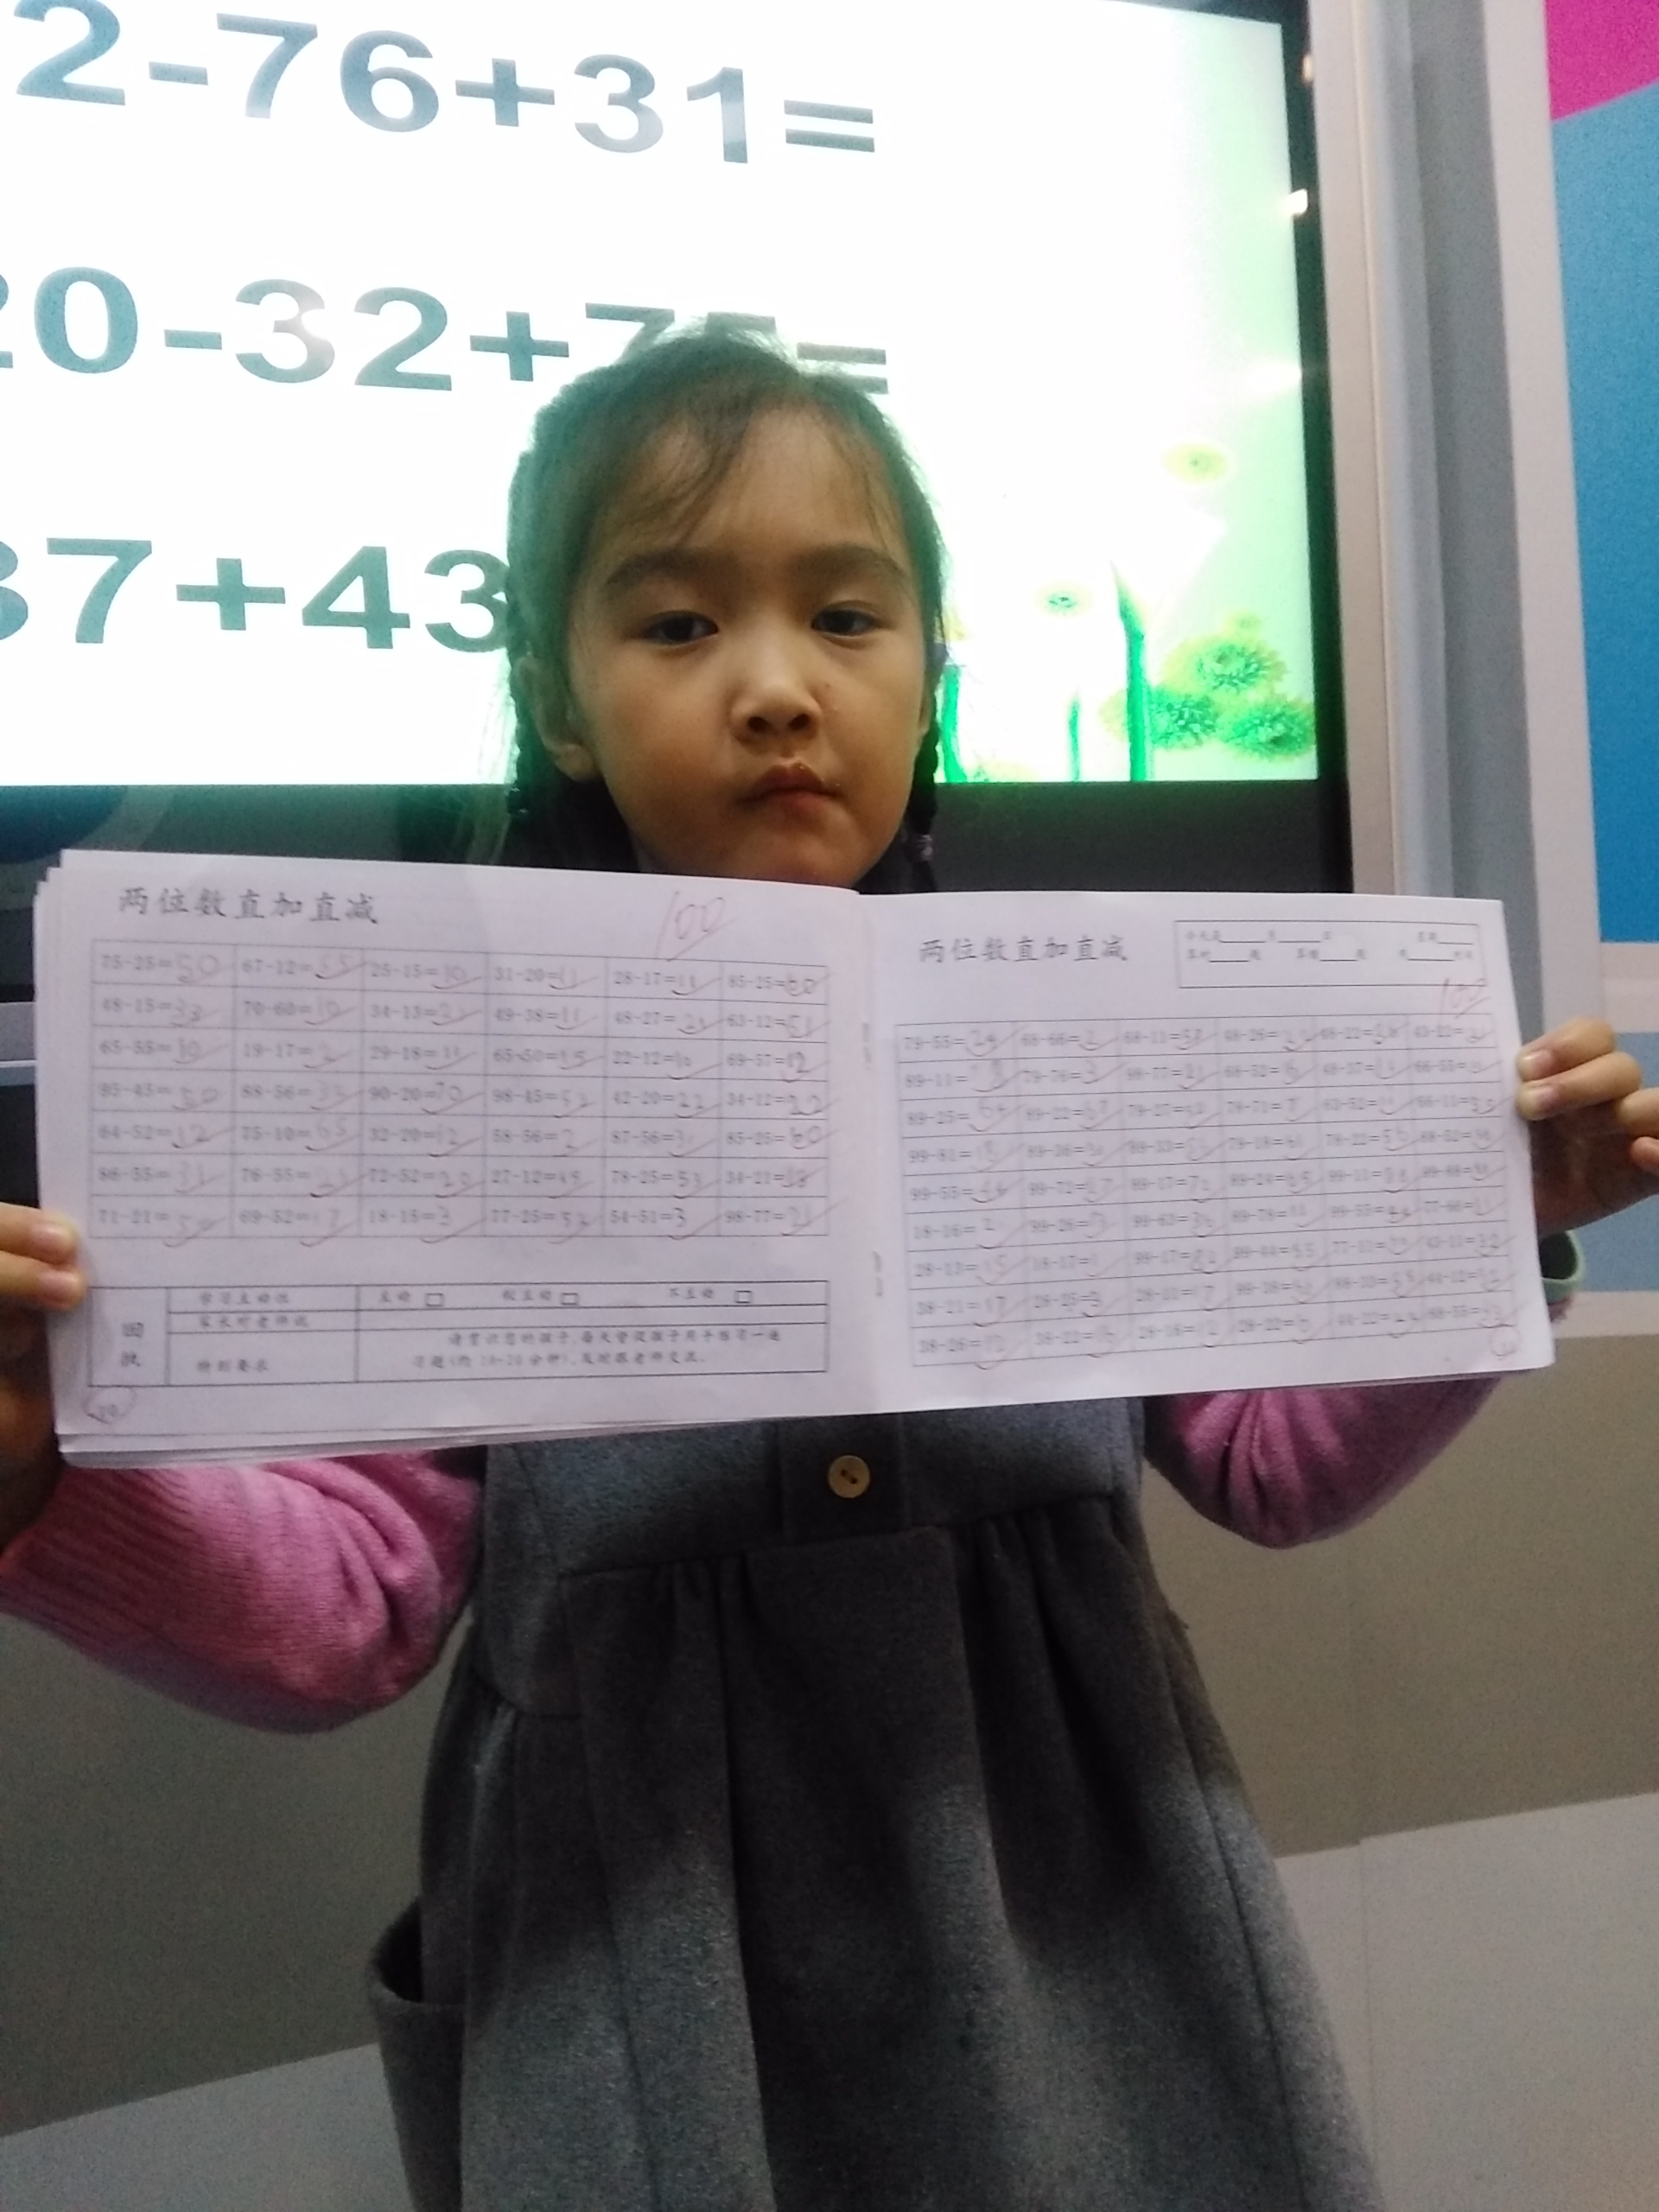 2-76+31=
20-32+75=
37+43
两位数直加直减
100
75-25=50 67-12=55 25-15=10 31-20=11 28-17=11 85-25=60
48-15=33 70-60=10 34-13=21 49-38=11 48-27=21 63-12=51
65-55=10 19-17=2 29-18=11 65-50=15 22-12=10 69-57=12
95-45=50 88-56=32 90-20=70 98-45=53 42-20=22 34-12=22
64-52=12 75-10=65 32-20=12 58-56=2 87-56=31 85-25=60
86-55=31 76-55=21 72-52=20 27-12=15 78-25=53 34-21=13
71-21=50 69-52=17 18-15=3 77-25=52 54-51=3 98-77=21
回执
学习主动性 主动 □ 较主动 □ 不主动 □
家长对老师说
特别要求
请赏识您的孩子,每天督促孩子用手练习一遍
习题(约 10-20 分钟),及时跟老师交流。
两位数直加直减
今天是 月 日 星期
100
79-55=24 68-66=2 48-26=22
89-11=78 79-76=3 98-77=21 68-52=16 48-37=11 66-55=11
89-25=64 89-22=67 78-71=7 63-52=11
99-81=18
99-55=44 99-72=27 89-24=65
18-16=2 99-26=73 99-63=36 89-78=11 99-55=44 77-66=11
28-13=15 18-17=1 99-17=82 99-44=55
38-21=17 28-25=3 28-11=17
38-26=12 28-16=12 28-22=6 44-22=22 68-55=13